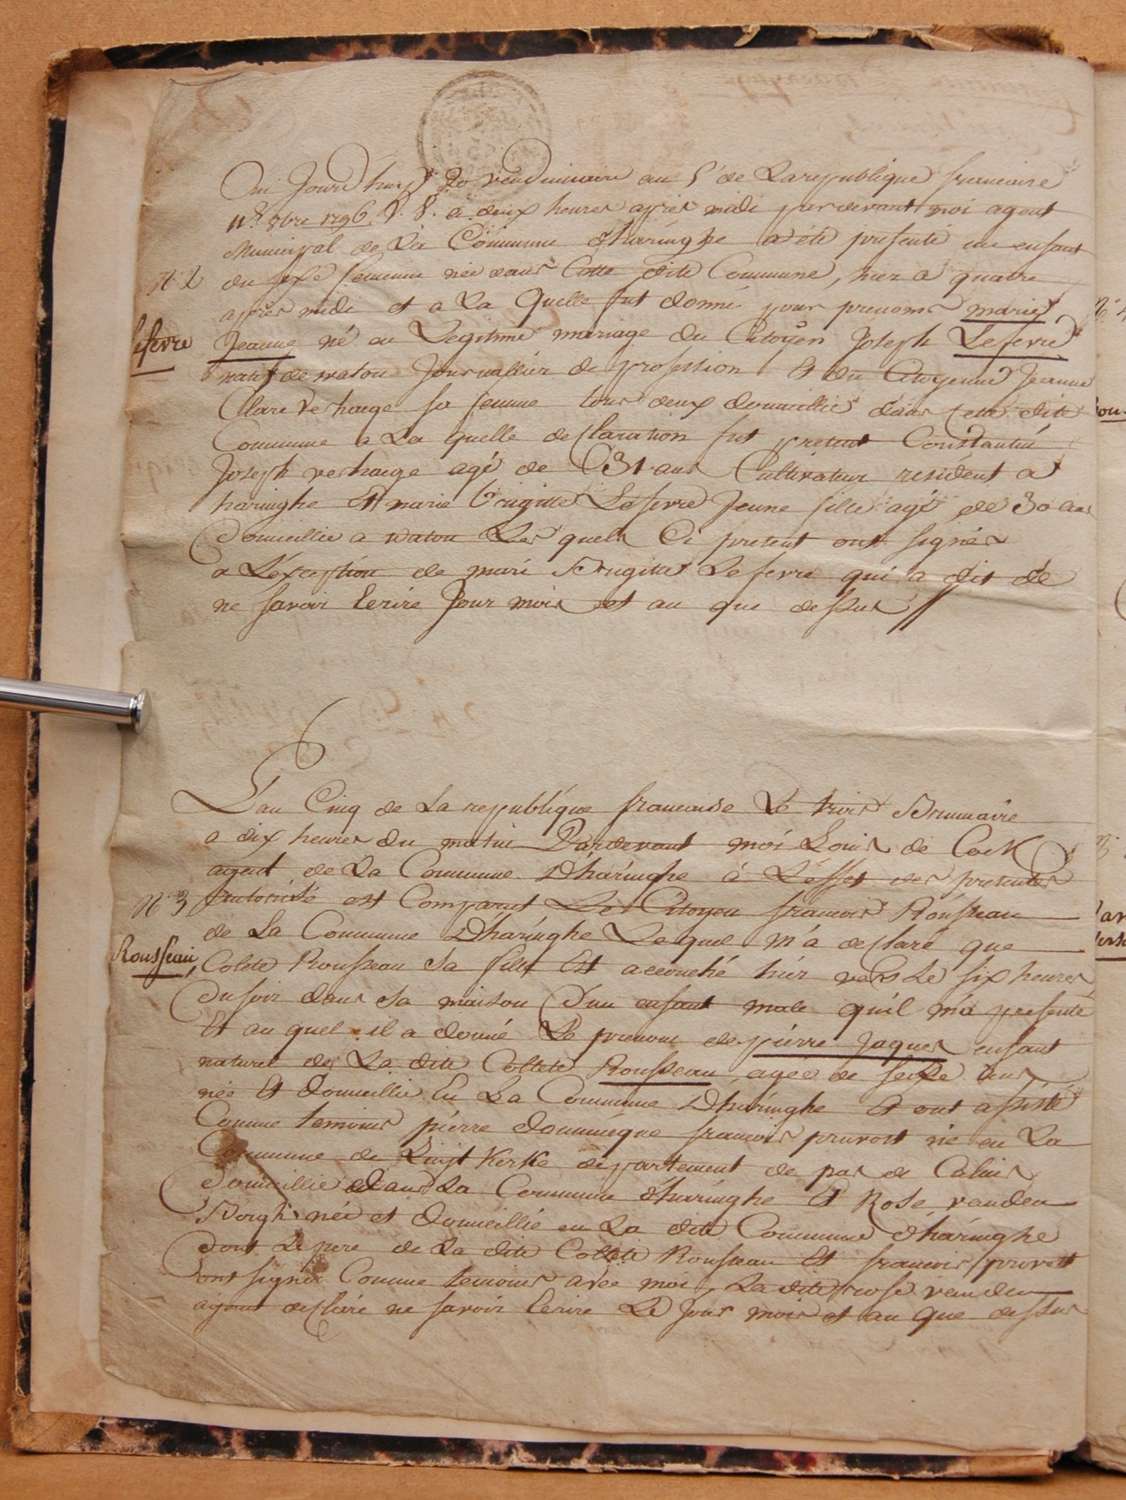 Au Jourd'huy 20 vendimiaire au 5e de La republique francaise
11e 8bre 1796 V. S. a deux heures apres midi par devant moi agent
Municipal de La Commune d'haringhe a été presenté un enfant
N° 2
du sexe feminin née dans Cette dite Commune, hier a quatre
apres midi et a La quelle fut donné pour prenoms marie
Lefevre
Jeanne né au Legitime mariage du Citoyen Joseph Lefevre
natif de watou Journallier de profession et du Citoyenne Jeanne
Clare Verhaege sa femme tous deux domeillié dans Cette dite
Commune a La quelle desclaration fut present Constantin
Joseph verhaege agé de 31 ans Cultivateur resident a
haringhe et marie brigitte Lefevre Jeune fille agé de 30 ans
Domeillie a watou Les quels Ci present ont signés
a L'exception de mari Brigitte Lefevre qui a dit de
ne savoir Ecrire Jour mois et au que dessus
L'an Cinq de La republique francaise Le trois Brumaire
a dix heures du matin Pardevant moi Louis de Cock
agent de La Commune D'háringhe à L'effet des presentes
N° 3
autorisé est Comparut Le Citoyen francois Rousseau
de La Commune D'háringhe Lequel m'a desclaré que
Rousseau
Colete Rousseau sa fille Est accouché hier vers Le six heures
du soir dans sa maison d'un enfant male qu'il m'a presenté
Et au quel il a donné Le prenom de pierre Jaques enfant
naturel de La dite Collete Rousseau agée de seize ans
née Et domeillie En La Commune D'háringhe Et ont assisté
Comme temoins piérre dominique francois pruvost né en La
Commune de kerke departement de pas de Calais
domeillie Dans La Commune d'háringhe Et Rose vanden
Bergh née et domeillié en La dite Commune d'háringhe
dont Le pere de La dite Collete Rousseau Et francois pruvost
ont signé Comme temoins avec moi, La dite rose vanden
ayant desclaré ne savoir Ecrire Le Jour mois et au que dessus